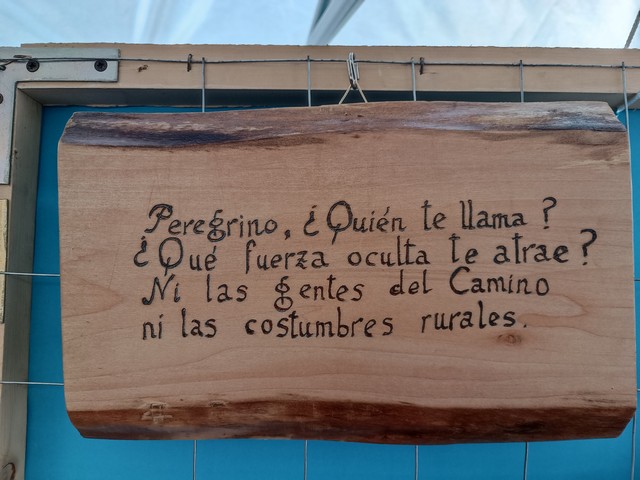 Peregrino, ¿Quién te llama?
¿Qué fuerza oculta te atrae?
Ni las gentes del Camino
ni las costumbres rurales.